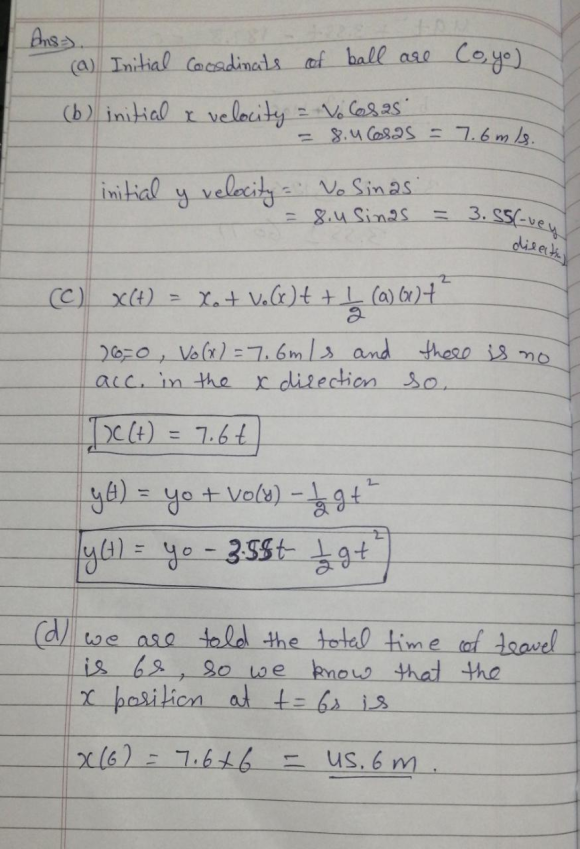 Ans⇒.
(a) Initial Coordinats of ball are (0,y0)
(b) initial x velocity = V0 Cos25°
= 8.4 Cos25 = 7.6 m/s.
initial y velocity = V0 Sin25°
= 8.4 Sin25 = 3.55(-vey
direct
(C) x(t) = x0 + V0(x)t + 1/2 (a)(x)t²
x0=0, V0(x) = 7.6m/s and there is no
acc. in the x direction so.
x(t) = 7.6t
y(t) = y0 + V0(y) - 1/2 gt²
y(t) = y0 - 3.55t - 1/2 gt²
(d) we are told the total time of travel
is 6s, so we know that the
x position at t = 6s is
x(6) = 7.6×6 = 45.6 m.